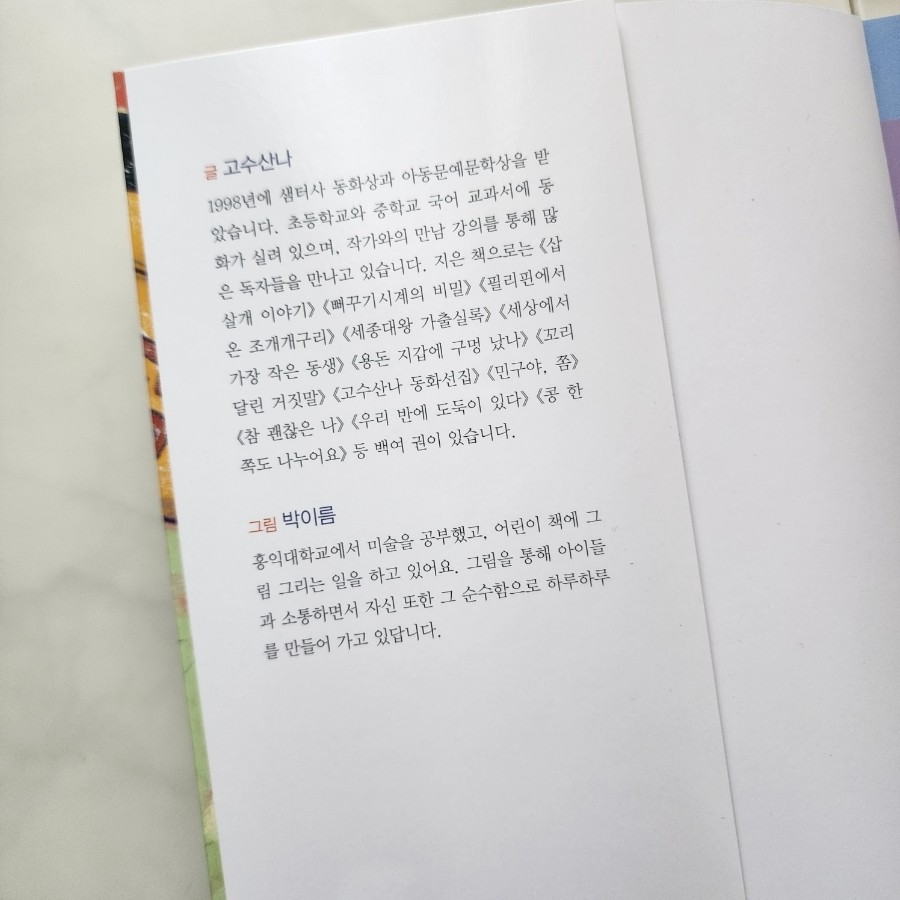 글 고수산나
1998년에 샘터사 동화상과 아동문예문학상을 받
았습니다. 초등학교와 중학교 국어 교과서에 동
화가 실려 있으며, 작가와의 만남 강의를 통해 많
은 독자들을 만나고 있습니다. 지은 책으로는 《삽
살개 이야기》 《뻐꾸기시계의 비밀》 《필리핀에서
온 조개개구리》 《세종대왕 가출실록》 《세상에서
가장 작은 동생》 《용돈 지갑에 구멍 났나》 《꼬리
달린 거짓말》 《고수산나 동화선집》 《민구야, 쫌》
《참 괜찮은 나》 《우리 반에 도둑이 있다》 《콩 한
쪽도 나누어요》 등 백여 권이 있습니다.
그림 박이름
홍익대학교에서 미술을 공부했고, 어린이 책에 그
림 그리는 일을 하고 있어요. 그림을 통해 아이들
과 소통하면서 자신 또한 그 순수함으로 하루하루
를 만들어 가고 있답니다.